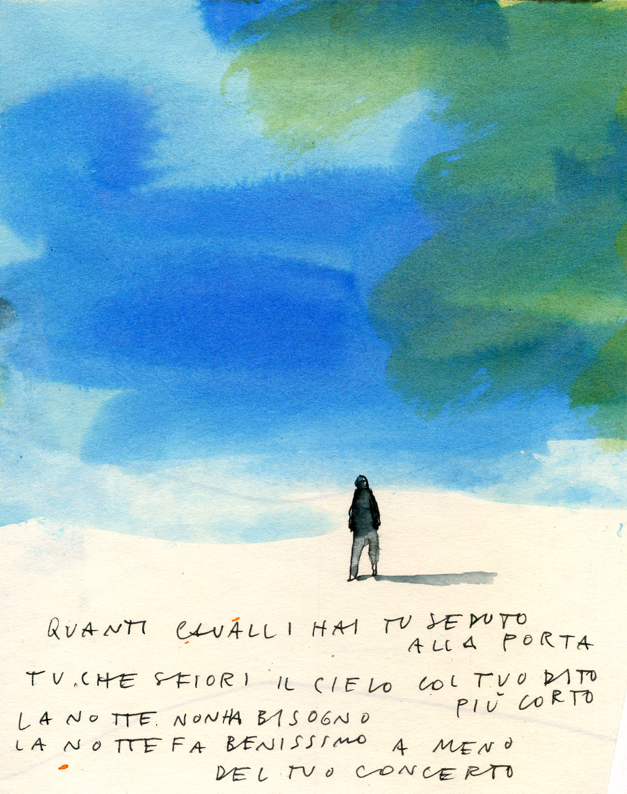 QUANTI CAVALLI HAI TU SEDUTO
ALLA PORTA
TU CHE SFIORI IL CIELO COL TUO DITO
PIÙ CORTO
LA NOTTE NON HA BISOGNO
LA NOTTE FA BENISSIMO A MENO
DEL TUO CONCERTO